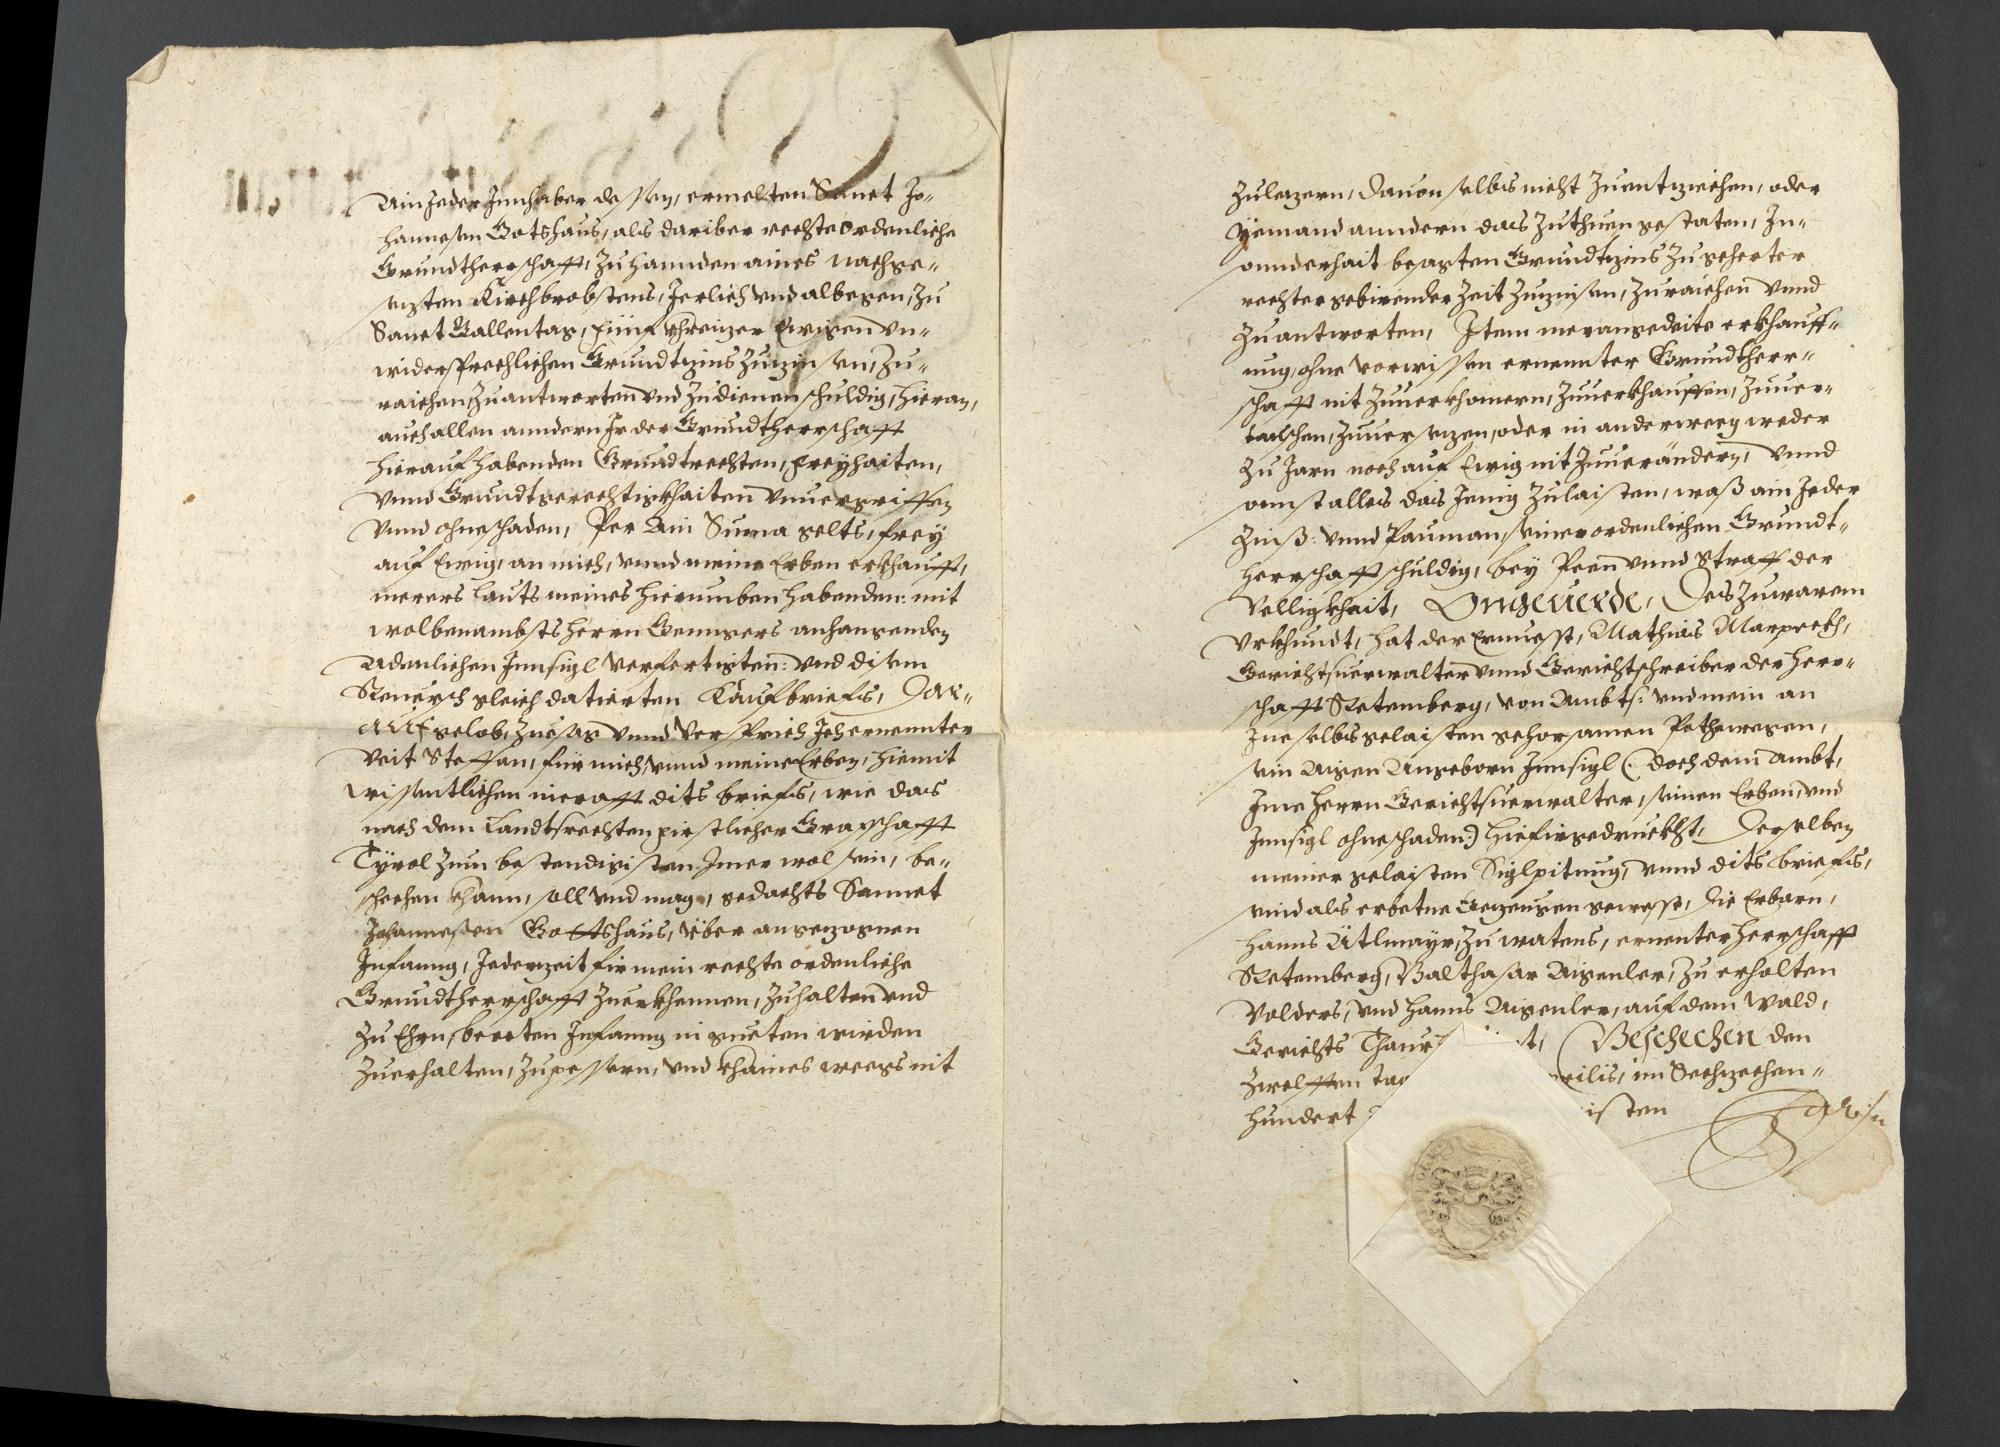 Ain Jeder Innhaber dessen, ermelten Sanct Jo-
hannesen Gotshaus, als dariber rechte ordenliche
Grundtherrschafft, zu hannden aines nachge-
sezten Kirchbrobstens, Jerlich vnd albegen, zu
Sanct Gallentag, fünf khreizer Ewigen vn-
widersprechlichen Grundtzins zuzinsen, zu-
raichen, zuantworten vnd zudienen schuldig, hieran,
auch allen anndern Ir der Grundtherrschafft
hierauf habenden Grundtrechten, freyhaiten,
vnnd Grundtgerechtigkhaiten vnuergriffen
vnnd ohne schaden, Per Ain Suma gelts, frey
auf Ewig, an mich, vnnd meine Erben erkhaufft,
merers lauts meines hierumben habenden: mit
wolbenambts herrn Genngers anhangenden
Adenlichen Innsigl verfertigten: vnd disem
Reuersch gleich datierten Kaufbriefs, Dar-
auf gelob, zuesag vnnd versprich Ich ernennter
Veit Steffan, für mich, vnnd meine Erben, hiemit
wissentlichen in crafft dits briefs, wie das
nach dem Landtsrechten firstlicher Grafschafft
Tyrol zum bestendigisten Imer wol sein, be-
schechen khann, soll vnd mag, gedachts Sannct
Johannesen Gottshaus, über angezognen
Infanng, Jederzeit fir mein rechte ordenliche
Grundtherrschafft zuerkhennen, zuhalten vnd
zu Ehrn, bererten Infanng in gueten wirden
zuerhalten, zupessern, vnd khaines weegs nit
zulezern, dauon selbs nicht zuentziechen, oder
Yemand anndern das zuthuen gestaten, In-
sonnderhait besagten Grundtzins zu gesezter
rechter gebirender Zeit zuzinsen, zuraichen vnnd
zuantworten, Item mer angedeite erkhauff-
ung, ohne vorwissen ernennter Grundtherr-
schafft nit zuuerkhomern, zuuerkhauffen, zuuer-
tauschen, zuuersezen, oder in anderweeg weder
zu Jarn noch auf Ewig nit zuuerändern, vnnd
sonnst alles das Jenig zulaisten, waß ain Jeder
Zinß: vnnd Pauman, seiner ordenlichen Grundt-
herrschafft schuldig, bey Peen vnnd Straff der
Velligkhait, Ongeuerde, Des zu warem
Vrkhundt, hat der Ernuesst, Mathias Marpeckh,
Gerichtsuerwalter vnnd Gerichtschreiber der herr-
schafft Retemberg, von Ambts: vnd mein an
Ine selbs gelaisten gehorsamen Pethwegen,
sein Aigen Angeborn Innsigl (: doch dem Ambt,
Ime Herrn Gerichtsuerwalter, seinen Erben, vnd
Innsigl ohne schaden:) hiefir gedruckht, Derselben
meiner gelaisten Siglpitung, vnnd dits briefs,
sind als erbetne Gezeugen gewesst, Die Erbarn,
Hanns Ätlmayr, zu watens, ernenter herrschafft
Retemberg, Balthasar Aigenler, zu erholten
Volders, vnd Hanns Aigenler, auf dem Wald,
Gerichts Thaur
Beschechen den
Zwelfften Tag
im Sechzechen-
hundert
isten